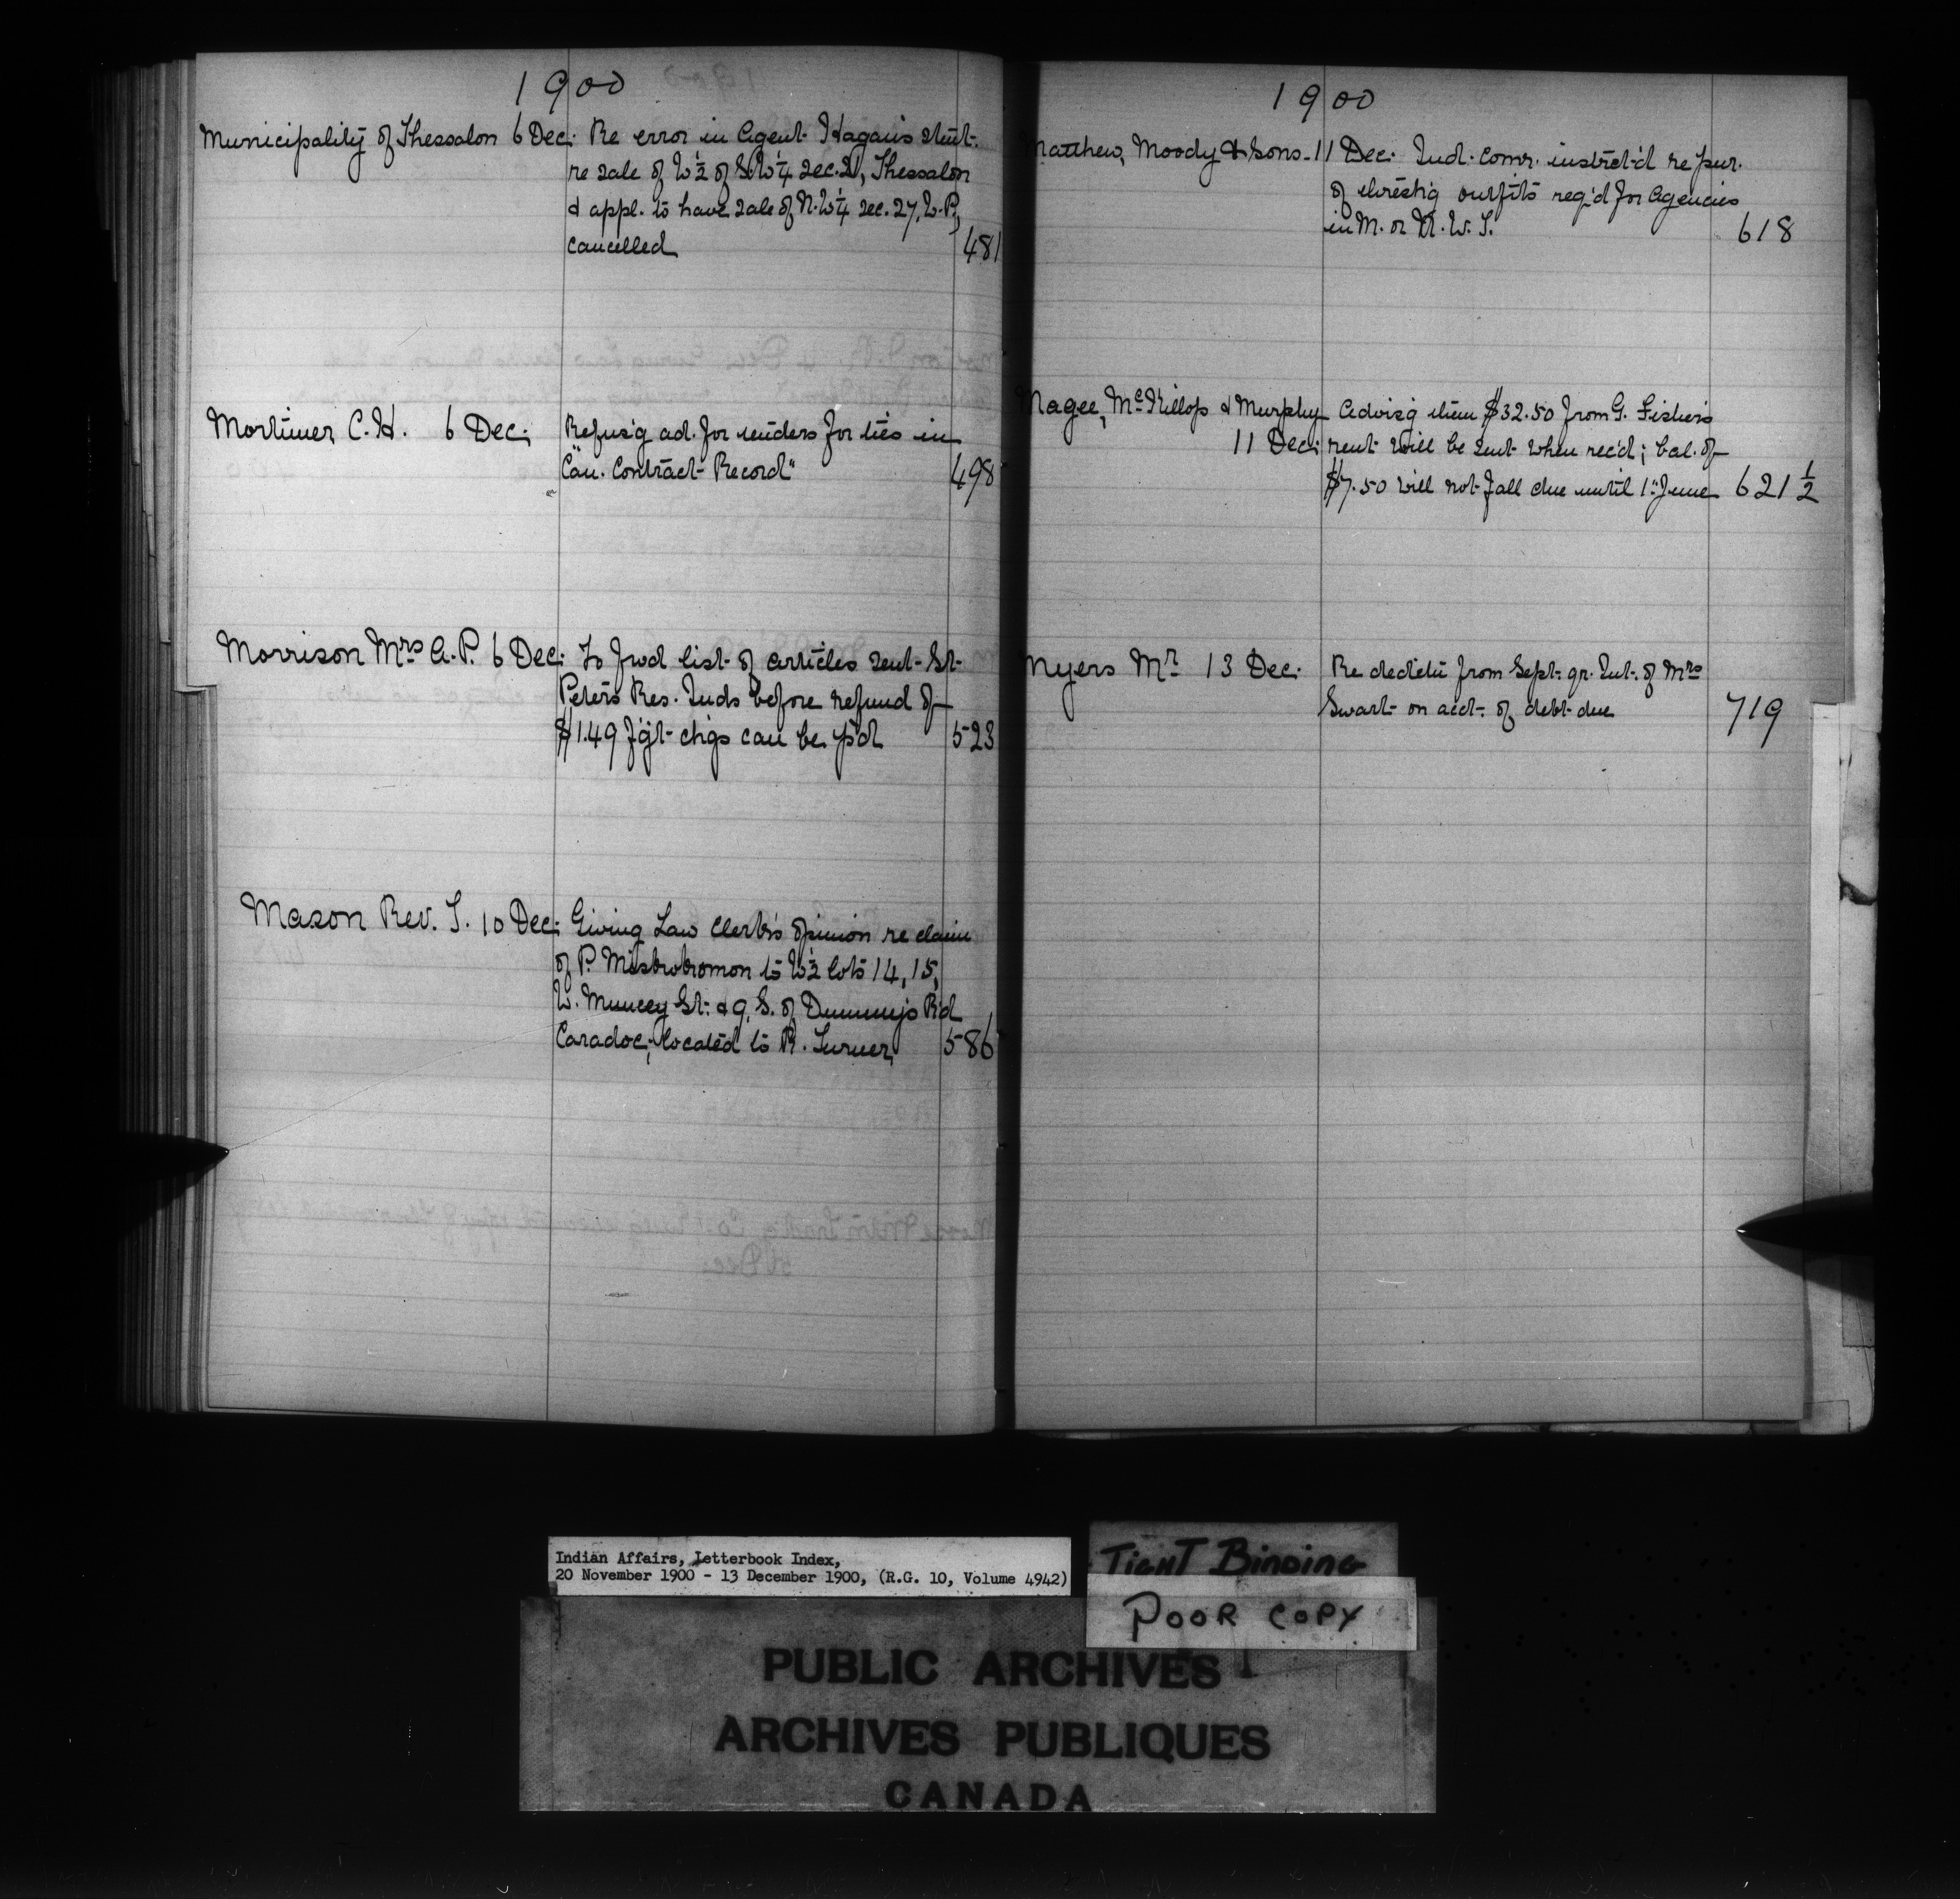 1900
Municipality of Thessalon 6 Dec. Re error in Agent Hagan's stmt.
re sale of W½ of S.W¼ sec. 21, Thessalon
& appl. to have sale of N.W¼ sec. 27, W.P.,
cancelled 481
Mortimer C.H. 6 Dec. Refus'g ad. for tenders for ties in
"Can. Contract Record" 498
Morrison Mrs A.P. 6 Dec. To fwd list of articles sent St.
Peter's Res. Inds before refund of
$1.49 f'g't ch'gs can be p'd 523
Mason Rev. S. 10 Dec. Giving Law Clerk's opinion re claim
of P. to W½ lots 14, 15,
W. Muncey St. & 9, S. of Rd
Caradoc, located to R. Turner 586
1900
Matthew, Moody & Sons 11 Dec. Ind. Comr. instrct'd re pur.
of thresh'g outfits req'd for Agencies
in M. or N.W.T. 618
Magee, McKillop & Murphy Advis'g them $32.50 from G. Fisher's
11 Dec. rent will be sent when rec'd; bal. of
$7.50 will not fall due until 1st June 621½
Myers Mr 13 Dec. Re from Sept. qr. Int. of Mrs
Swart on acct. of debt due 719
Indian Affairs, Letterbook Index,
20 November 1900 - 13 December 1900, (R.G. 10, Volume 4942)
TIGHT BINDING
POOR COPY
PUBLIC ARCHIVES
ARCHIVES PUBLIQUES
CANADA